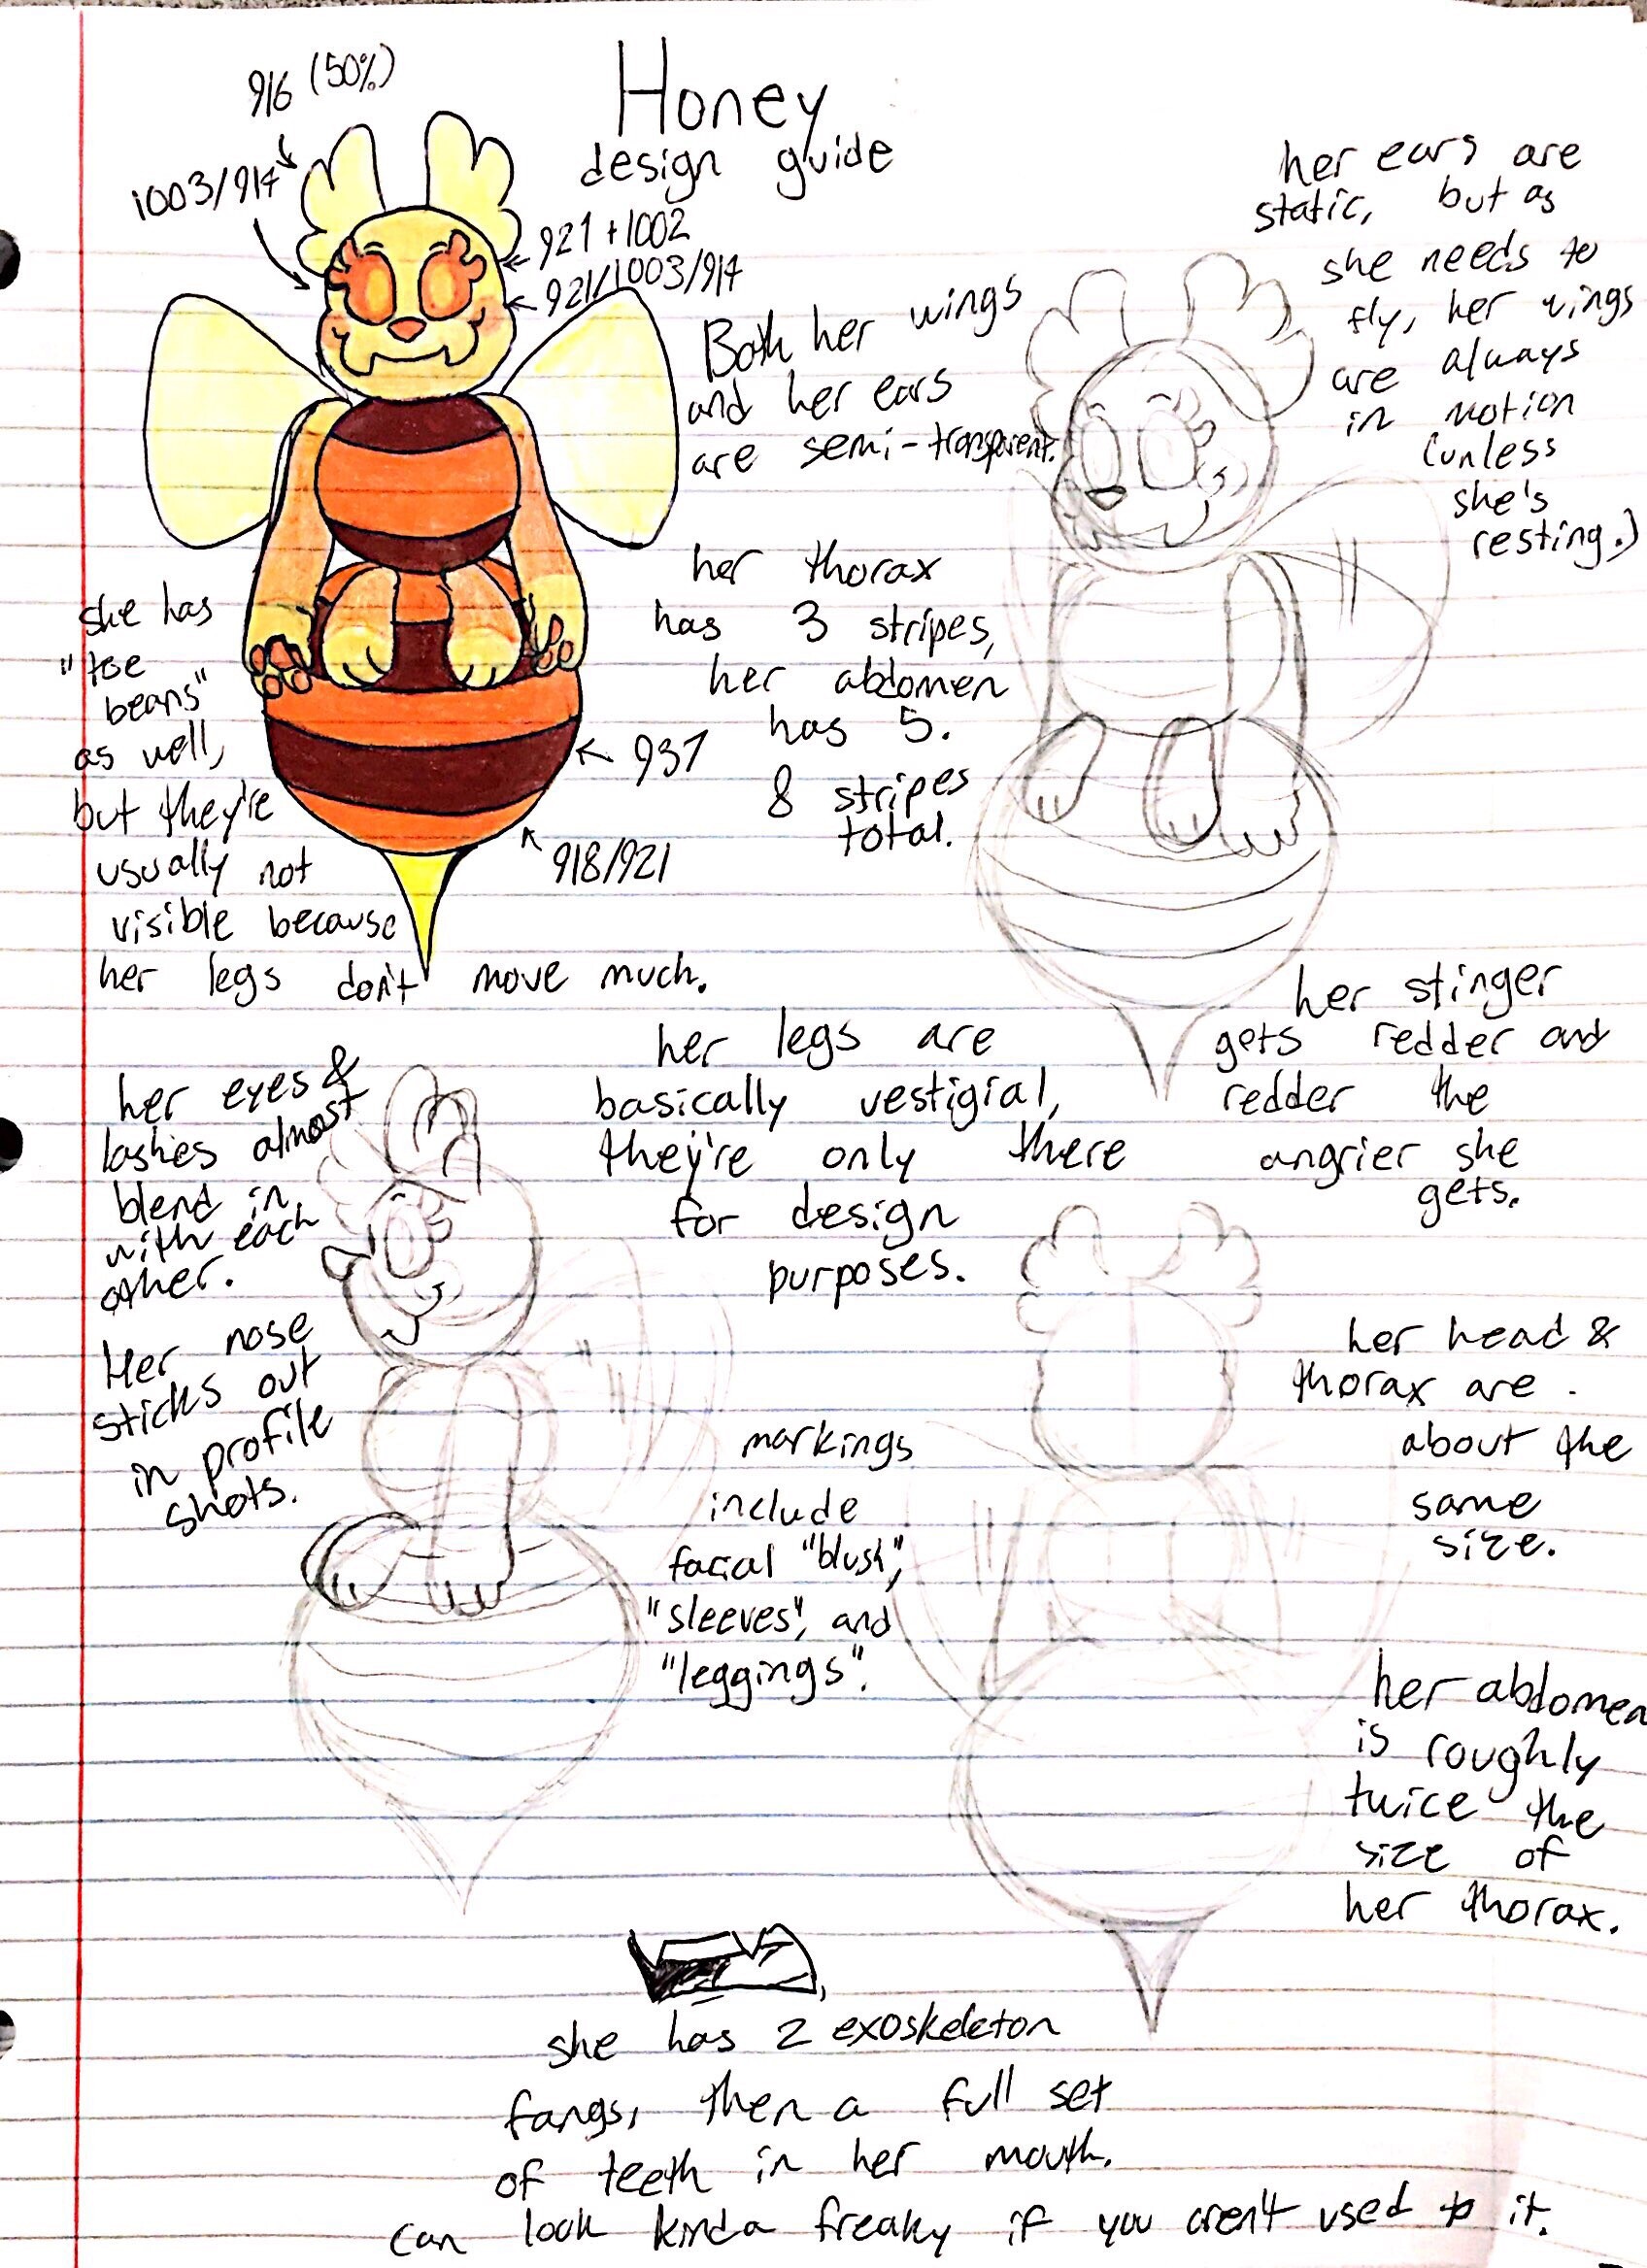 Honey
design guide
916 (50%)
1003/914
921 + 1002
921/1003/914
937
918/921
Both her wings
and her ears
are semi-transparent.
her ears are
static, but as
she needs to
fly, her wings
are always
in motion
(unless
she's
resting.)
her thorax
has 3 stripes,
her abdomen
has 5.
8 stripes
total.
she has
"toe
beans"
as well,
but they're
usually not
visible because
her legs don't move much.
her legs are
basically vestigial,
they're only there
for design
purposes.
her stinger
gets redder and
redder the
angrier she
gets.
her eyes &
lashes almost
blend in
with each
other.
Her nose
sticks out
in profile
shots.
markings
include
facial "blush",
"sleeves", and
"leggings".
her head &
thorax are
about the
same
size.
her abdomen
is roughly
twice the
size of
her thorax.
she has 2 exoskeleton
fangs, then a full set
of teeth in her mouth.
can look kinda freaky if you aren't used to it.